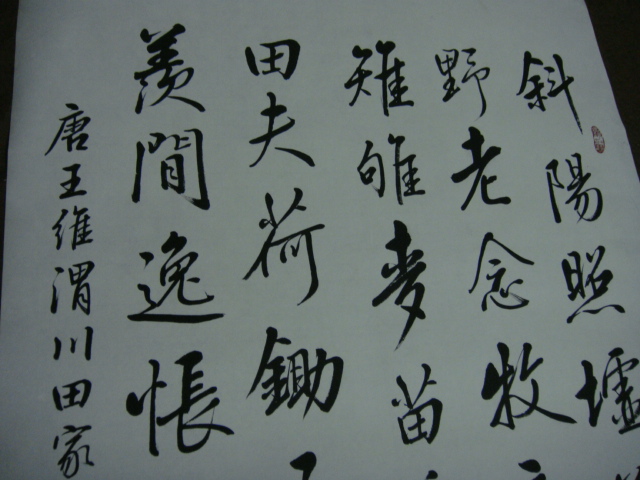 斜陽照墟
野老念牧
雉雊麥苗
田夫荷鋤
羨閒逸悵
唐王維渭川田家